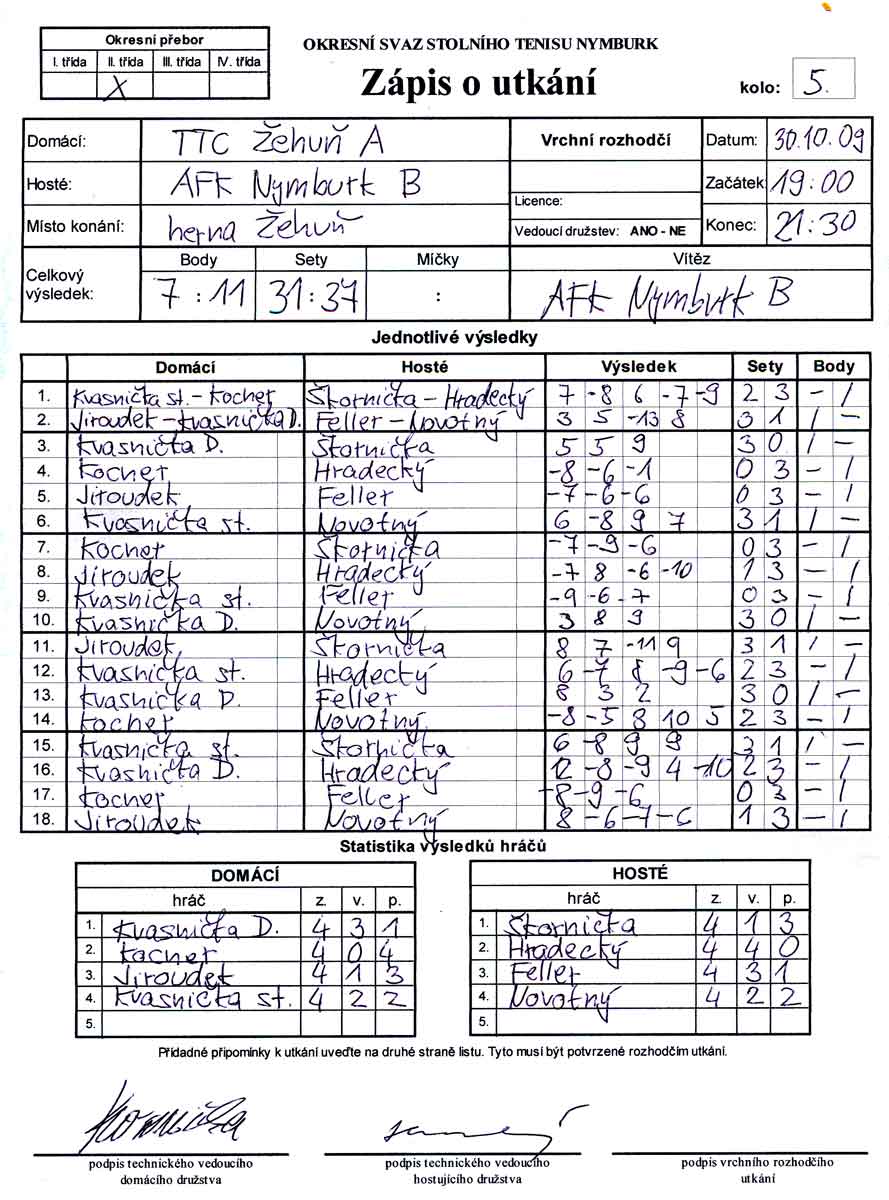 Okresní přebor
I. třída II. třída III. třída IV. třída
X
OKRESNÍ SVAZ STOLNÍHO TENISU NYMBURK
Zápis o utkání
kolo: 5.
Domácí: TTC Žehuň A
Vrchní rozhodčí
Datum: 30.10.09
Hosté: AFK Nymburk B
Začátek 19:00
Licence:
Místo konání: herna Žehuň
Vedoucí družstev: ANO - NE
Konec: 21:30
Celkový výsledek:
Body Sety Míčky Vítěz
7:11 31:37 : AFK Nymburk B
Jednotlivé výsledky
Domácí Hosté Výsledek Sety Body
1. Kvasnička st. - Kocher Škornička - Hradecký 7 -8 6 -7 -9 2 3 - 1
2. Jiroudek - Kvasnička D. Feller - Novotný 3 5 -13 8 3 1 1 -
3. Kvasnička D. Škornička 5 5 9 3 0 1 -
4. Kocher Hradecký -8 -6 -1 0 3 - 1
5. Jiroudek Feller -7 -6 -6 0 3 - 1
6. Kvasnička st. Novotný 6 -8 9 7 3 1 1 -
7. Kocher Škornička -7 -9 -6 0 3 - 1
8. Jiroudek Hradecký -7 8 -6 -10 1 3 - 1
9. Kvasnička st. Feller -9 -6 -7 0 3 - 1
10. Kvasnička D. Novotný 3 8 9 3 0 1 -
11. Jiroudek Škornička 8 7 -11 9 3 1 1 -
12. Kvasnička st. Hradecký 6 -7 8 -9 -6 2 3 - 1
13. Kvasnička D. Feller 8 3 2 3 0 1 -
14. Kocher Novotný -8 -5 8 10 5 2 3 - 1
15. Kvasnička st. Škornička 6 -8 9 9 3 1 1 -
16. Kvasnička D. Hradecký 12 -8 -9 4 -10 2 3 - 1
17. Kocher Feller -8 -9 -6 0 3 - 1
18. Jiroudek Novotný 8 -6 -7 -6 1 3 - 1
Statistika výsledků hráčů
DOMÁCÍ
hráč z. v. p.
1. Kvasnička D. 4 3 1
2. Kocher 4 0 4
3. Jiroudek 4 1 3
4. Kvasnička st. 4 2 2
5.
HOSTÉ
hráč z. v. p.
1. Škornička 4 1 3
2. Hradecký 4 4 0
3. Feller 4 3 1
4. Novotný 4 2 2
5.
Přídadné připomínky k utkání uveďte na druhé straně listu. Tyto musí být potvrzené rozhodčím utkání.
podpis technického vedoucího
domácího družstva
podpis technického vedoucího
hostujícího družstva
podpis vrchního rozhodčího
utkání